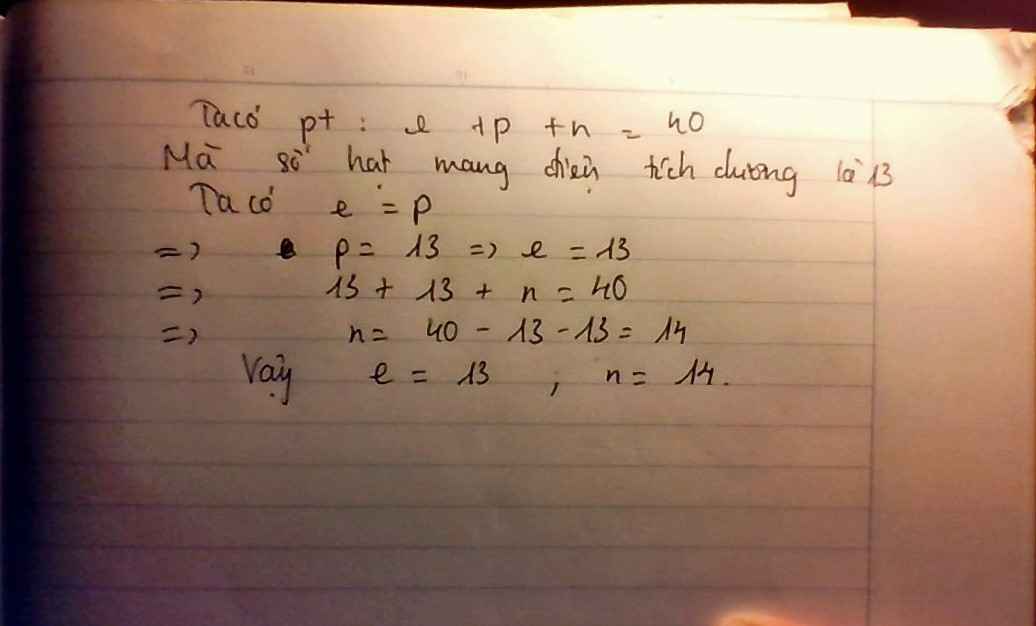 Ta có pt : e + p + n = 40
Mà số hạt mang điện tích dương là 13
Ta có e = p
=> p = 13 => e = 13
=> 13 + 13 + n = 40
=> n = 40 - 13 - 13 = 14
Vậy e = 13 , n = 14.